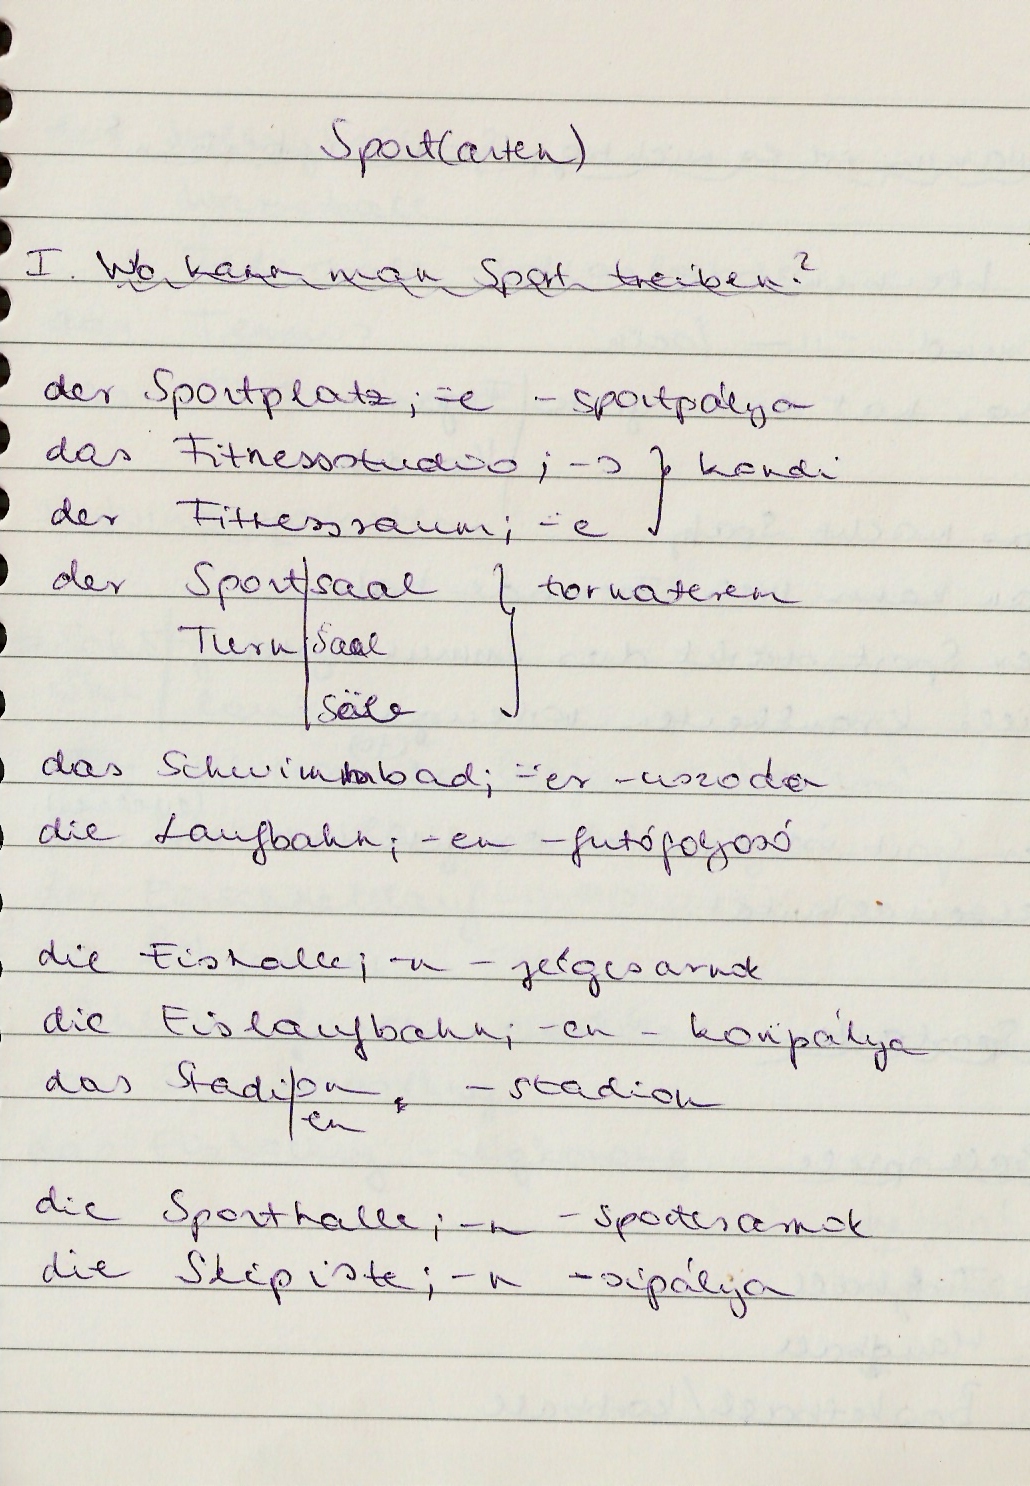 Sport(arten)
I. Wo kann man Sport treiben?
der Sportplatz; ⸚e - sportpálya
das Fitnessstudio; -s } kondi
der Fitnessraum; ⸚e
der Sport|saal } tornaterem
Turn|saal
säle
das Schwimmbad; ⸚er - uszoda
die Laufbahn; -en - futófolyosó
die Eishalle; -n - jégcsarnok
die Eislaufbahn; -en - koripálya
das Stadi|on - stadion
en
die Sporthalle; -n - sportcsarnok
die Skipiste; -n - sípálya